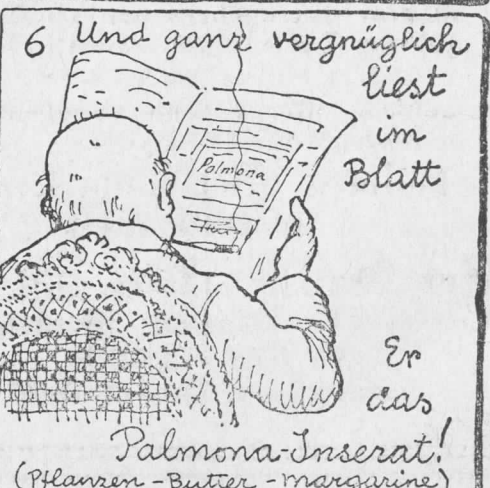 6 Und ganz vergnüglich
liest
im
Blatt
Palmona
Er
das
Palmona-Inserat!
(Pflanzen-Butter-margarine)